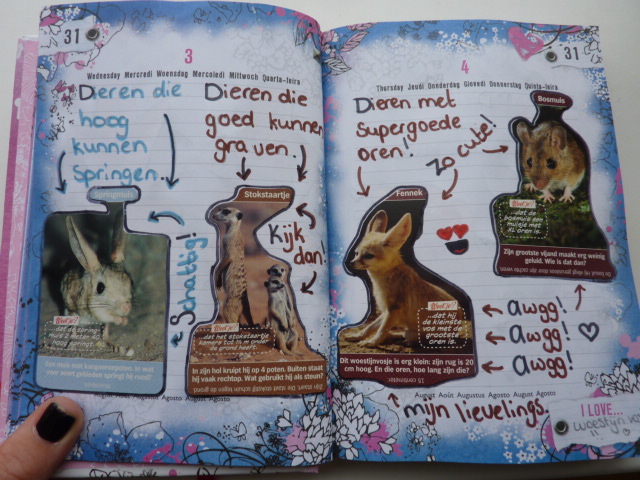 31
3
Wednesday Mercredi Woensdag Mercoledi Mittwoch Quarta-feira
Dieren die
hoog
kunnen
springen.
Dieren die
goed kunnen
graven.
Springmuis
Schattig!
Wist je?
...dat de spring-
muis 2 meter 40
hoog springt.
Stokstaartje
Kijk
dan!
Wist je?
...dat het stokstaartje
In zijn hol kruipt hij op 4 poten. Buiten staat
hij vaak rechtop. Wat gebruikt hij als steun?
August Août Augustus Agosto August Agosto
31
4
Thursday Jeudi Donderdag Giovedi Donnerstag Quinta-feira
Dieren met
supergoede
oren!
Zo cute!
Bosmuis
Wist je?
...dat de
bosmuis een
muisje met
XL oren is.
Zijn grootste vijand maakt erg weinig
geluid. Wie is dat dan?
Fennek
Wist je?
...dat hij
de kleinste
vos met de
grootste
oren is.
Dit woestijnvosje is erg klein: zijn rug is 20
cm hoog. En die oren, hoe lang zijn die?
15 centimeter
Awgg!
Awgg!
Awgg!
August Août Augustus Agosto August Agosto
mijn lievelings.
I LOVE...